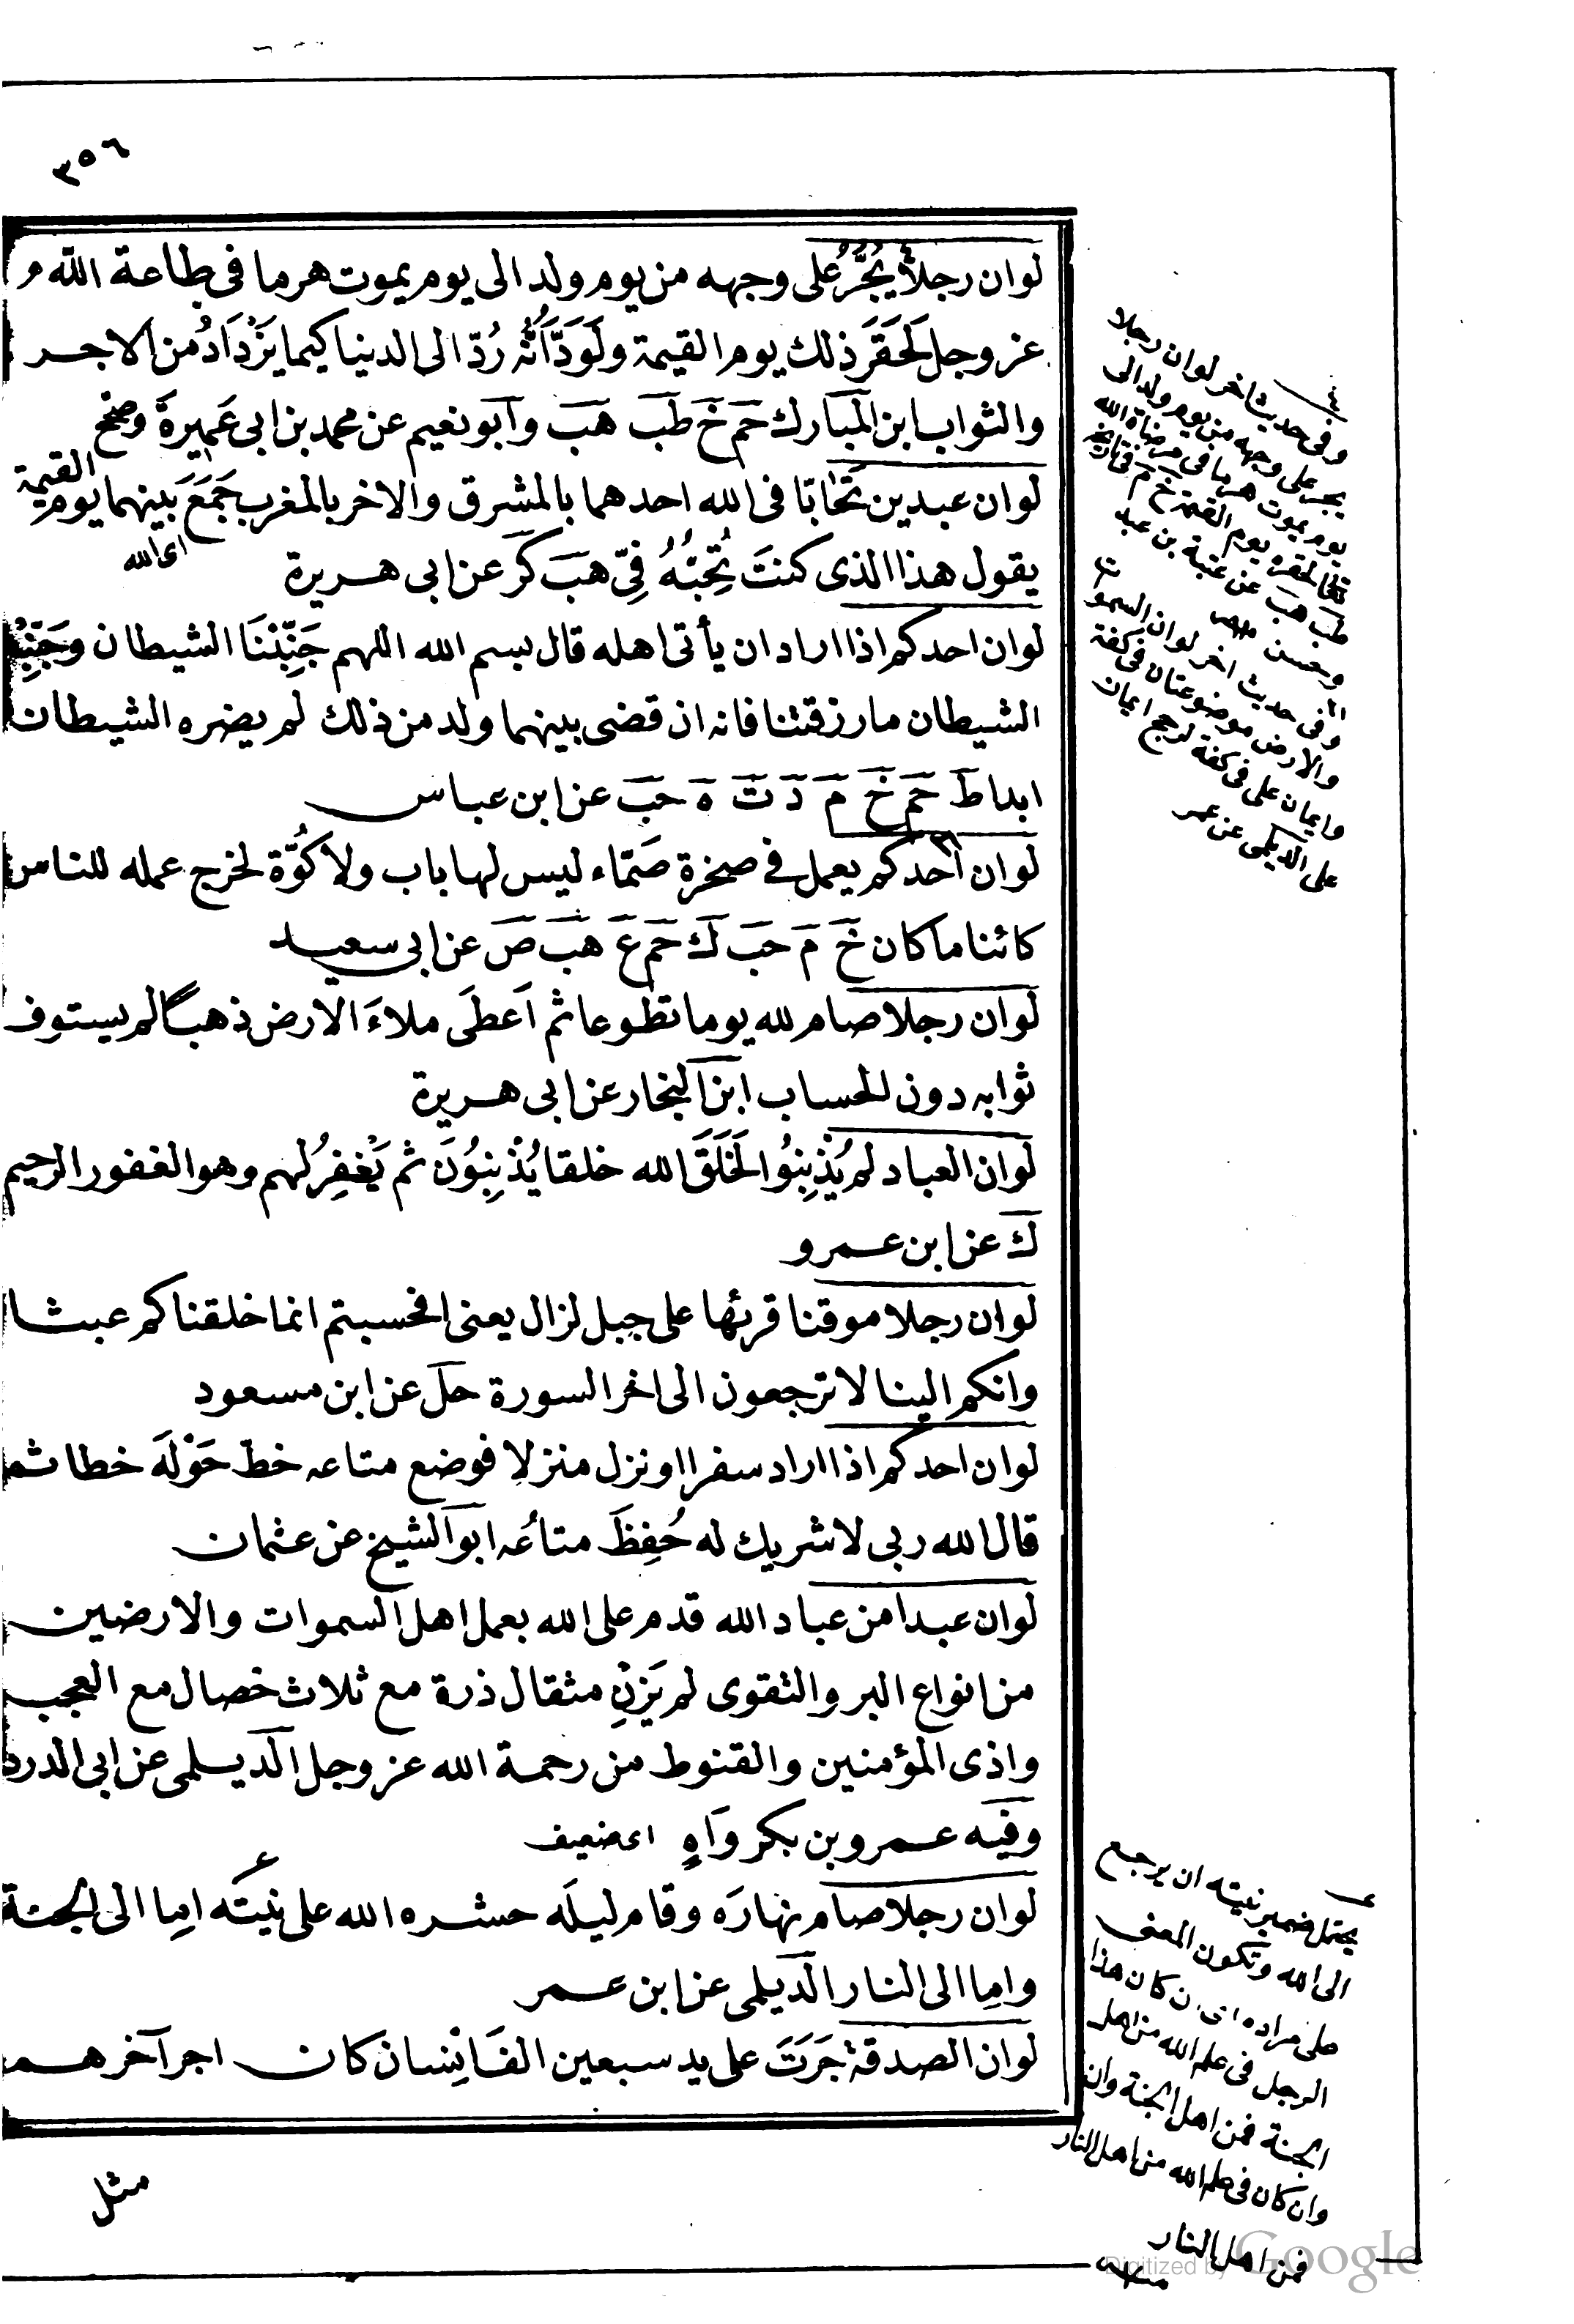 ٣٥٦
لوان رجلا يُجَرُّ على وجهه من يوم ولد الى يوم يموت هرما فى طاعة الله
عز وجل لَحَقَّرَ ذلك يوم القيمة ولَوَدَّ اَنَّهُ رُدّ الى الدينا كيما يَزْدَادُ من الاجر
والثواب ابن المبارك حم خ طب هب وابو نعيم عن محمد بن ابى عَمِيرَة وصح
لوان عبدين تَحَابَّا فى الله احدهما بالمشرق والاخر بالمغرب جَمَعَ بَينهما يوم القيمة
اى الله
يقول هذا الذى كنتَ تُحِبُّهُ فِىّ هب كر عن ابى هريرة
لوان احدكم اذا اراد ان يأتى اهله قال بسم الله اللهم جَنِّبْنَا الشيطان وجَنِّبْ
الشيطان ما رزقتنا فانه ان قضى بينهما ولد من ذلك لم يضره الشيطان
ابدا ط حم خ م د ت ه حب عن ابن عباس
لوان احدكم يعمل فى صخرة صَمَّاء ليس لها باب ولا كُوَّة لخرج عمله للناس
كائنا ما كان خ م حب ك حم ع هب ص عن ابى سعيد
لوان رجلا صام لله يوما تطوعا ثم اَعطَى ملاءَ الارض ذهبًا لم يستوف
ثوابه دون الحساب ابن النجار عن ابى هريرة
لوان العباد لم يُذْنِبُوا لَخَلَقَ الله خلقا يُذْنِبُونَ ثم يَغْفِرُ لهم وهو الغفور الرحيم
ك عن ابن عمرو
لوان رجلا موقنا قرئها على جبل لزال يعنى افحسبتم انما خلقناكم عبثا
وانكم الينا لا ترجعون الى اخر السورة حل عن ابن مسعود
لوان احدكم اذا اراد سفرا او نزل منزلا فوضع متاعه خطّ حَوْلَهَ خطا ثم
قال الله ربى لا شريك له حُفِظَ متاعُه ابو الشيخ عن عثمان
لوان عبدا من عباد الله قدم على الله بعمل اهل السموات والارضين
من انواع البر والتقوى لم يَزِنْ مثقال ذرة مع ثلاث خصال مع العجب
واذى المؤمنين والقنوط من رحمة الله عز وجل الديلمى عن ابى الدرد
وفيه عمرو بن بكر وَاهٍ اى ضعيف
لوان رجلا صام نهارَه وقام ليلَه حشره الله على نيته اما الى الجنة
واما الى النار الديلمى عن ابن عمر
لوان الصدقة جَرَتَ على يد سبعين الفَ اِنْسان كان اجر آخرهم
مثل
وفى حديث اخر لوان رجلا
يجر على وجهه من يوم ولد الى
يوم يموت هرما فى مرضاة الله
تعالى لحقره يوم القيمة خ م فى تاريخه
طب هب عن عتبة بن عبد
وحسن
وفى حديث اخر لوان السمو
والارض موضوعتان فى كفة
وايمان على فى كفة لرجح ايمان
على الديلمى عن عمر
يحتمل ضمير نيته ان يرجع
الى الله وتكون المعنى
على مراده اى ان كان هذا
الرجل فى علم الله من اهل
الجنة فمن اهل الجنة وان
وان كان فى علم الله من اهل النار
فمن اهل النار
Digitized by Google